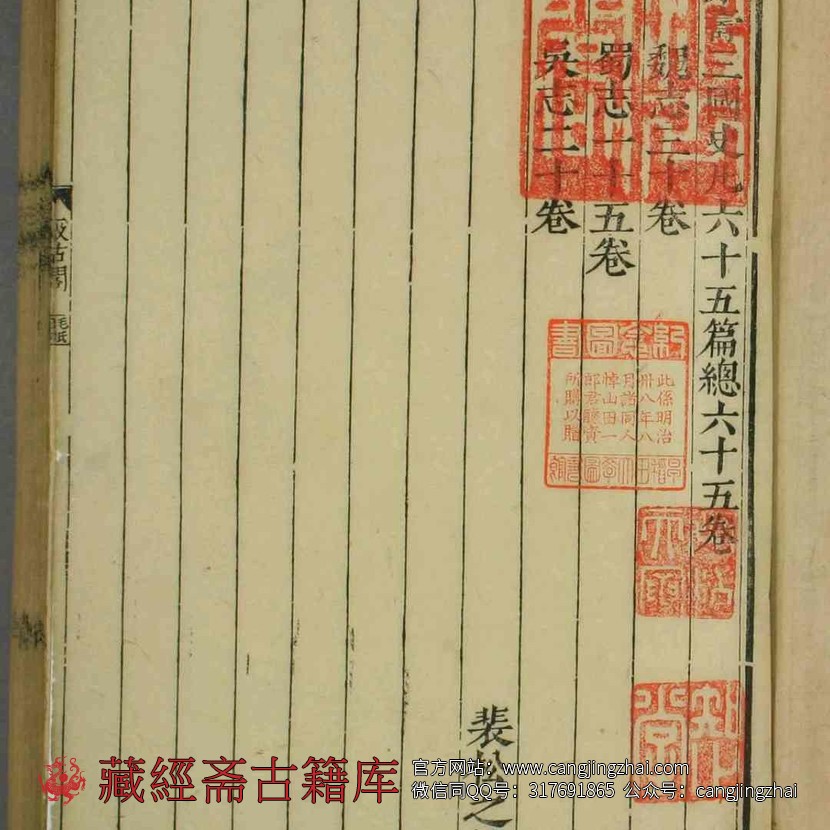 壽三國史凡六十五篇總六十五卷
魏志三十卷
蜀志一十五卷
吳志二十卷
裴松之
汲古閣
毛氏
紀念圖書
此係明治
卅八年八
月諸同人
悼山田一
郎君醵資
所購以贈
藏經斋古籍库
官方网站：www.cangjingzhai.com
微信同QQ号：317691865 公众号：cangjingzhai